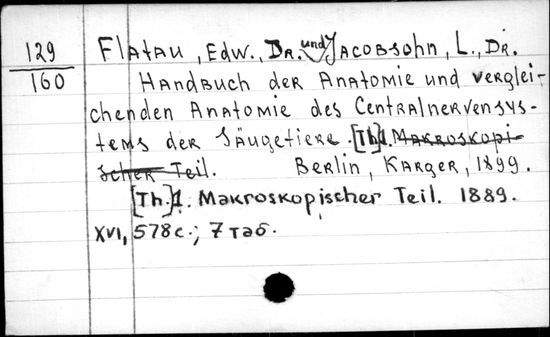 129
160
Flatau, Edw., Dr. und Jacobsohn, L., Dr.
Handbuch der Anatomie und verglei-
chenden Anatomie des Centralnervensys-
tems der Säugetiere. [Th]1. Makroskopi-
scher Teil. Berlin, Karger, 1899.
[Th.]1. Makroskopischer Teil. 1889.
XVI, 578 с.; 7 таб.